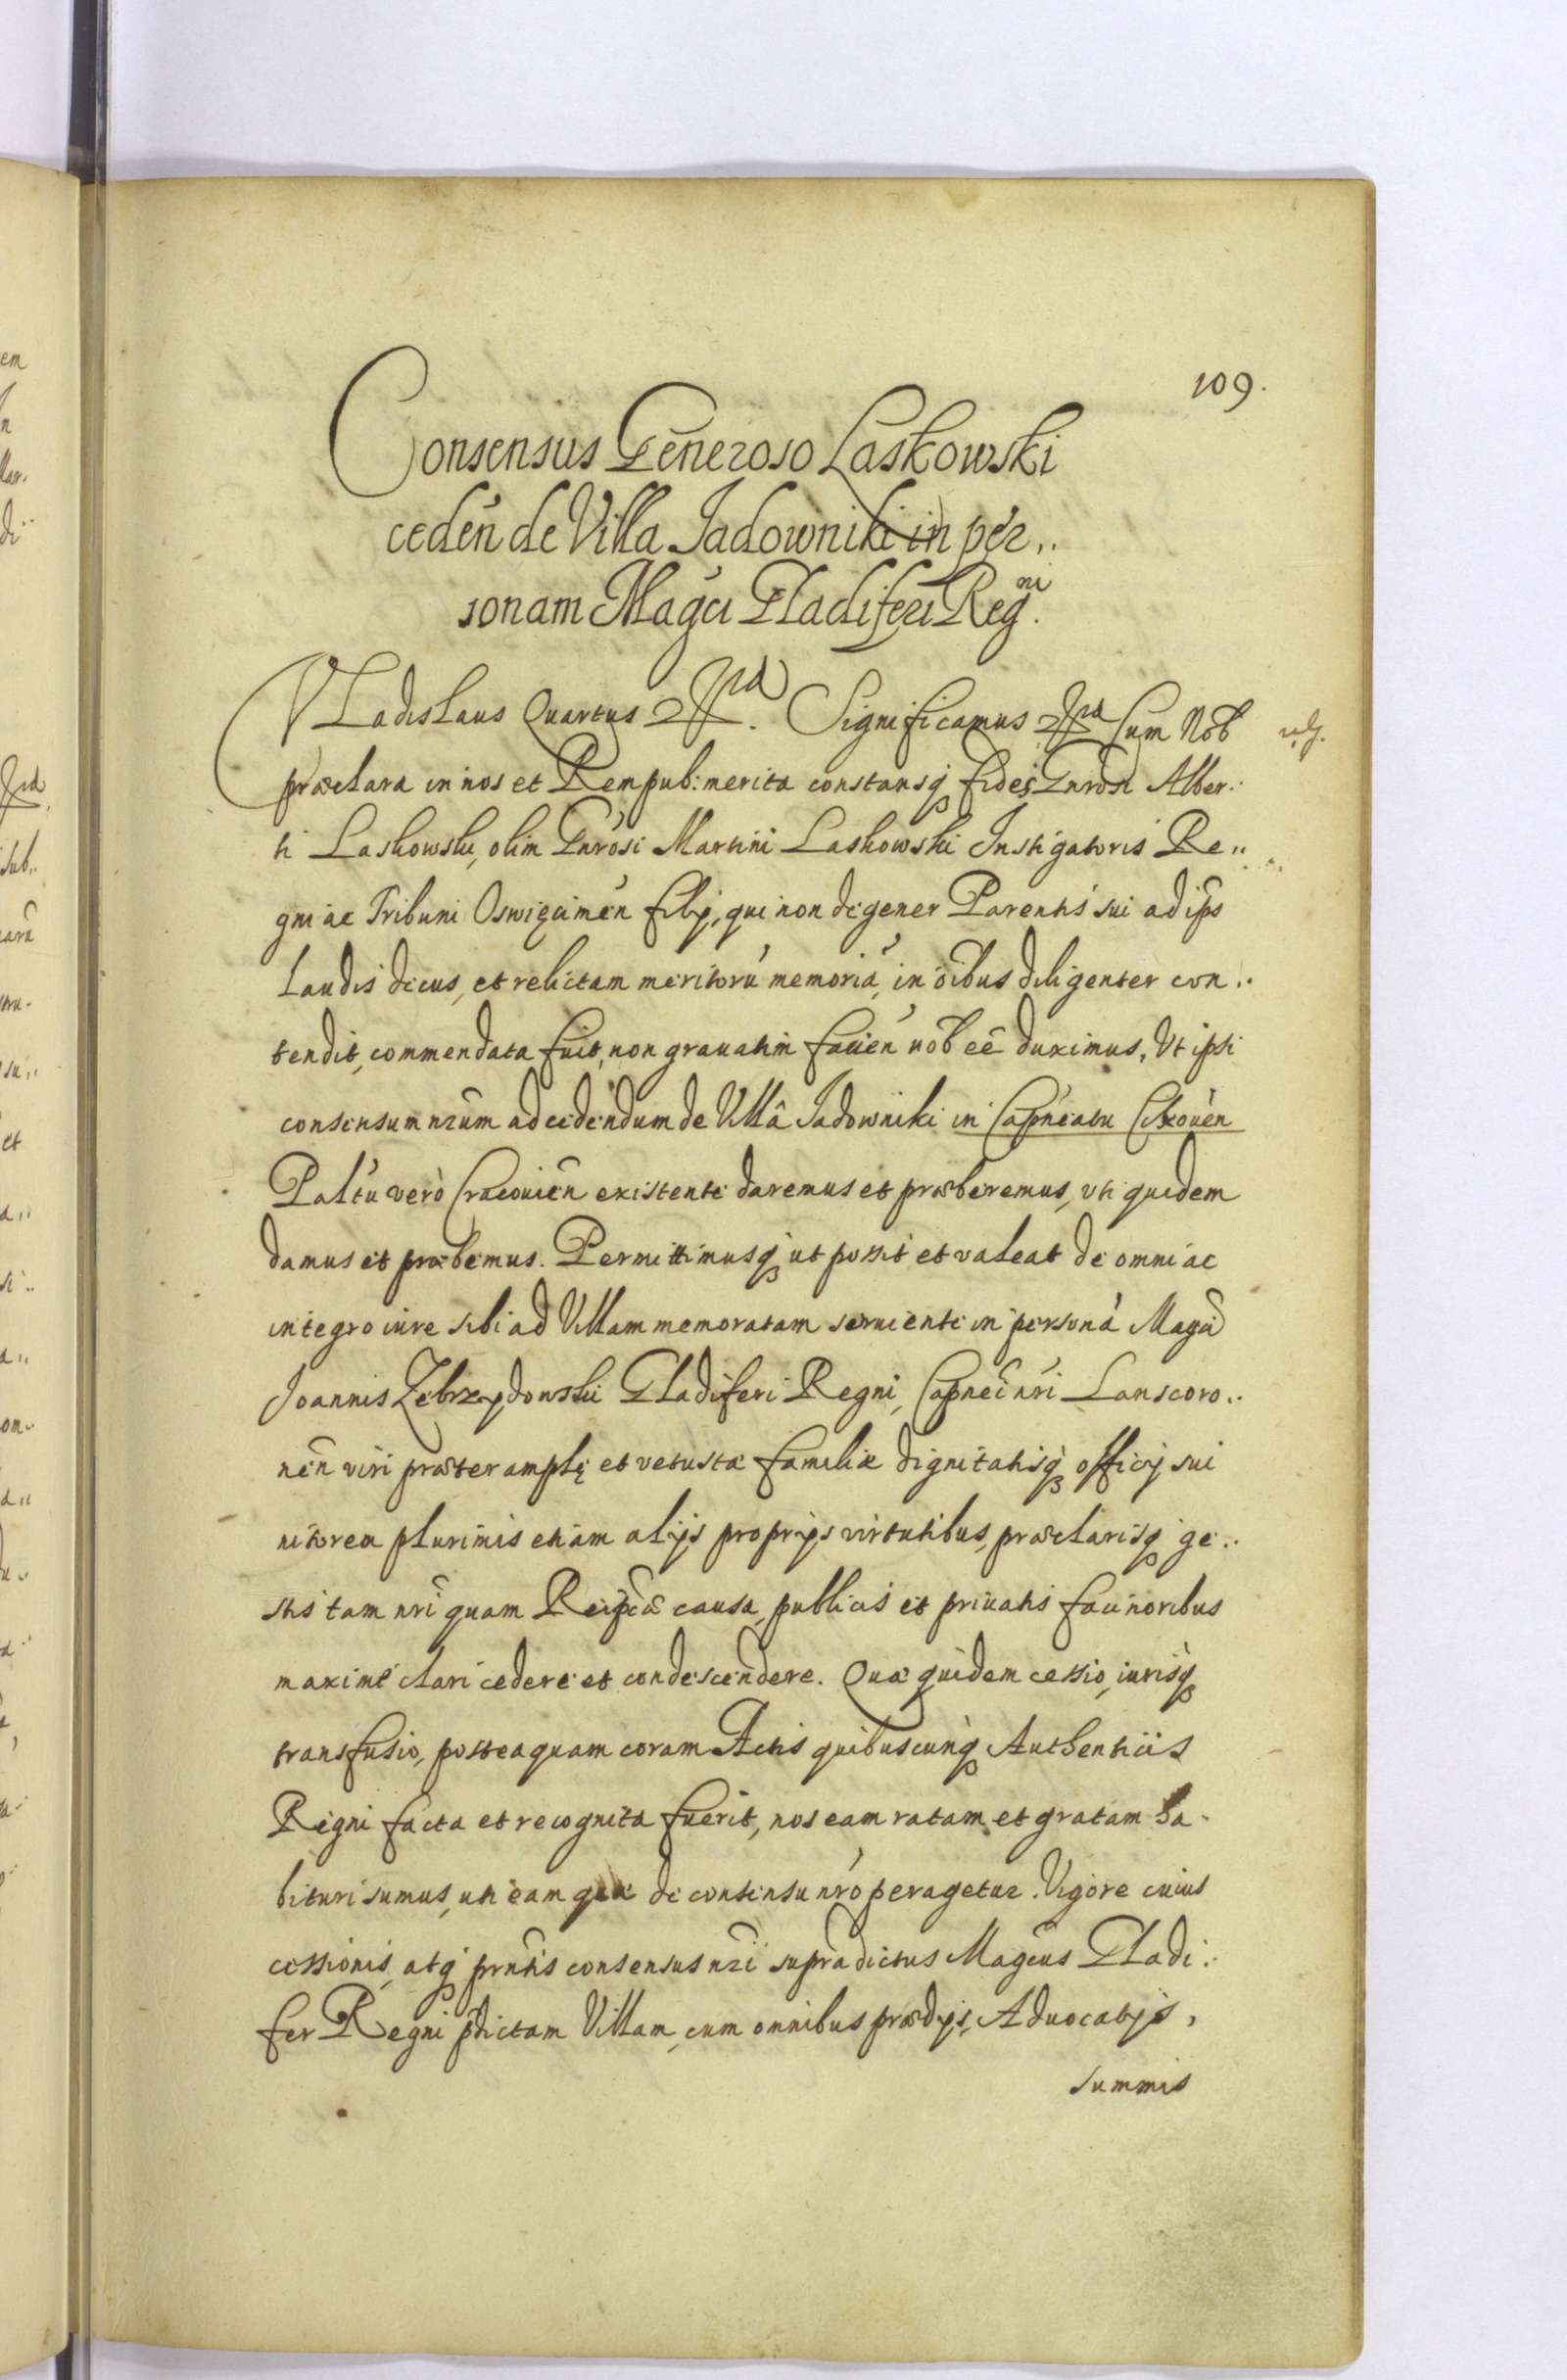 109.
Consensus Generoso Laskowski
cedeń de Villa Jadowniki in per„
sonam Magci Gladiferi Regni.
Vladislaus Quartus etc. Significamus etc. Cum Nob
præclara in nos et Rempub: merita constansq fides Gnrosi Alber„
ti Laskowski, olim Gnrosi Martini Laskowski Instigatoris Re„
gni ac Tribuni Oswięcimeń filij, qui non degener Parentis sui ad ips
Laudis decus, et relictam meritorū memoriā, in oībus diligenter con„
tendit, commendata fuit, non grauatim facień nob eē duximus, Vt ipsi
consensum nrūm ad cedendum de Villâ Jadowniki in Capneatu
Paltu verò Cracouień existente daremus et præberemus, vti quidem
damus et præbemus. Permittimusq ut possit et valeat de omni ac
integro iure sibi ad Villam memoratam seruiente in personā Magci
Joannis Zebrzydowski Gladiferi Regni, Capnei nrī Lanscoro„
neń viri præter amplę et vetustæ familiæ dignitatisq officij sui
nitorem plurimis etiam alijs proprijs virtutibus, præclarisq ge„
stis tam nrī quam Reipcæ causa, publicis et priuatis facinoribus
maximè clari cedere et condescendere. Quæ quidem cessio, iurisq
transfusio, posteaquam coram Actis quibuscunq Authenticis
Regni facta et recognita fuerit, nos eam ratam et gratam ha„
bituri sumus, uti eam quæ de consensu nrō peragetur. Vigore cuius
cessionis, atq prntis consensus nrī supradictus Magcus Gladi„
fer Regni pdictam Villam, cum omnibus prædijs, Aduocatijs,
summis